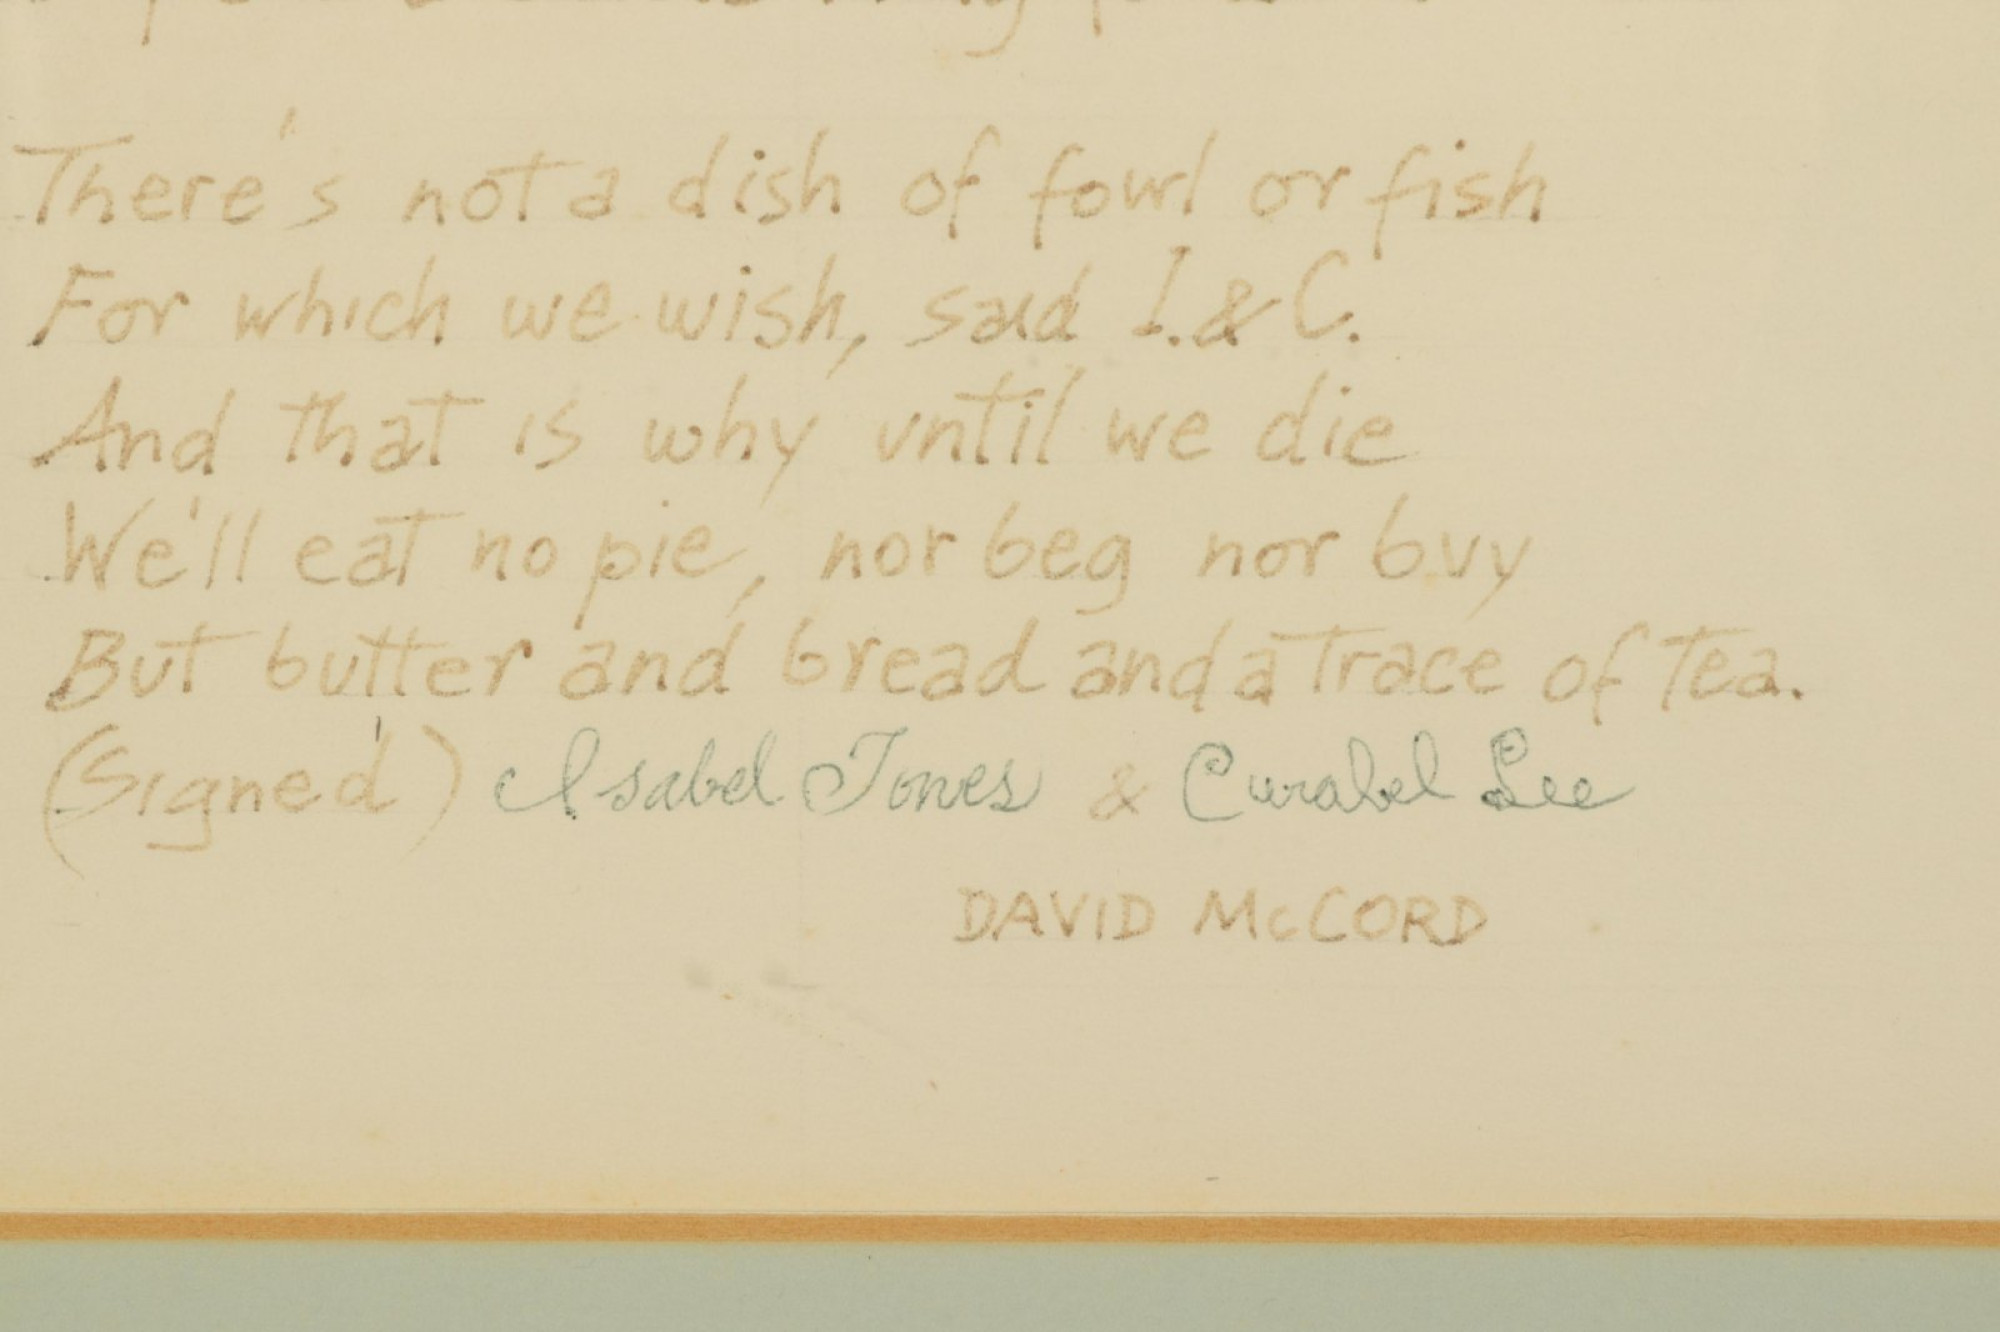 There's not a dish of fowl or fish
For which we wish, said I. & C.
And that is why until we die
We'll eat no pie, nor beg nor buy
But butter and bread and a trace of tea.
(Signed) Isabel Jones & Curabel Lee
DAVID McCORD